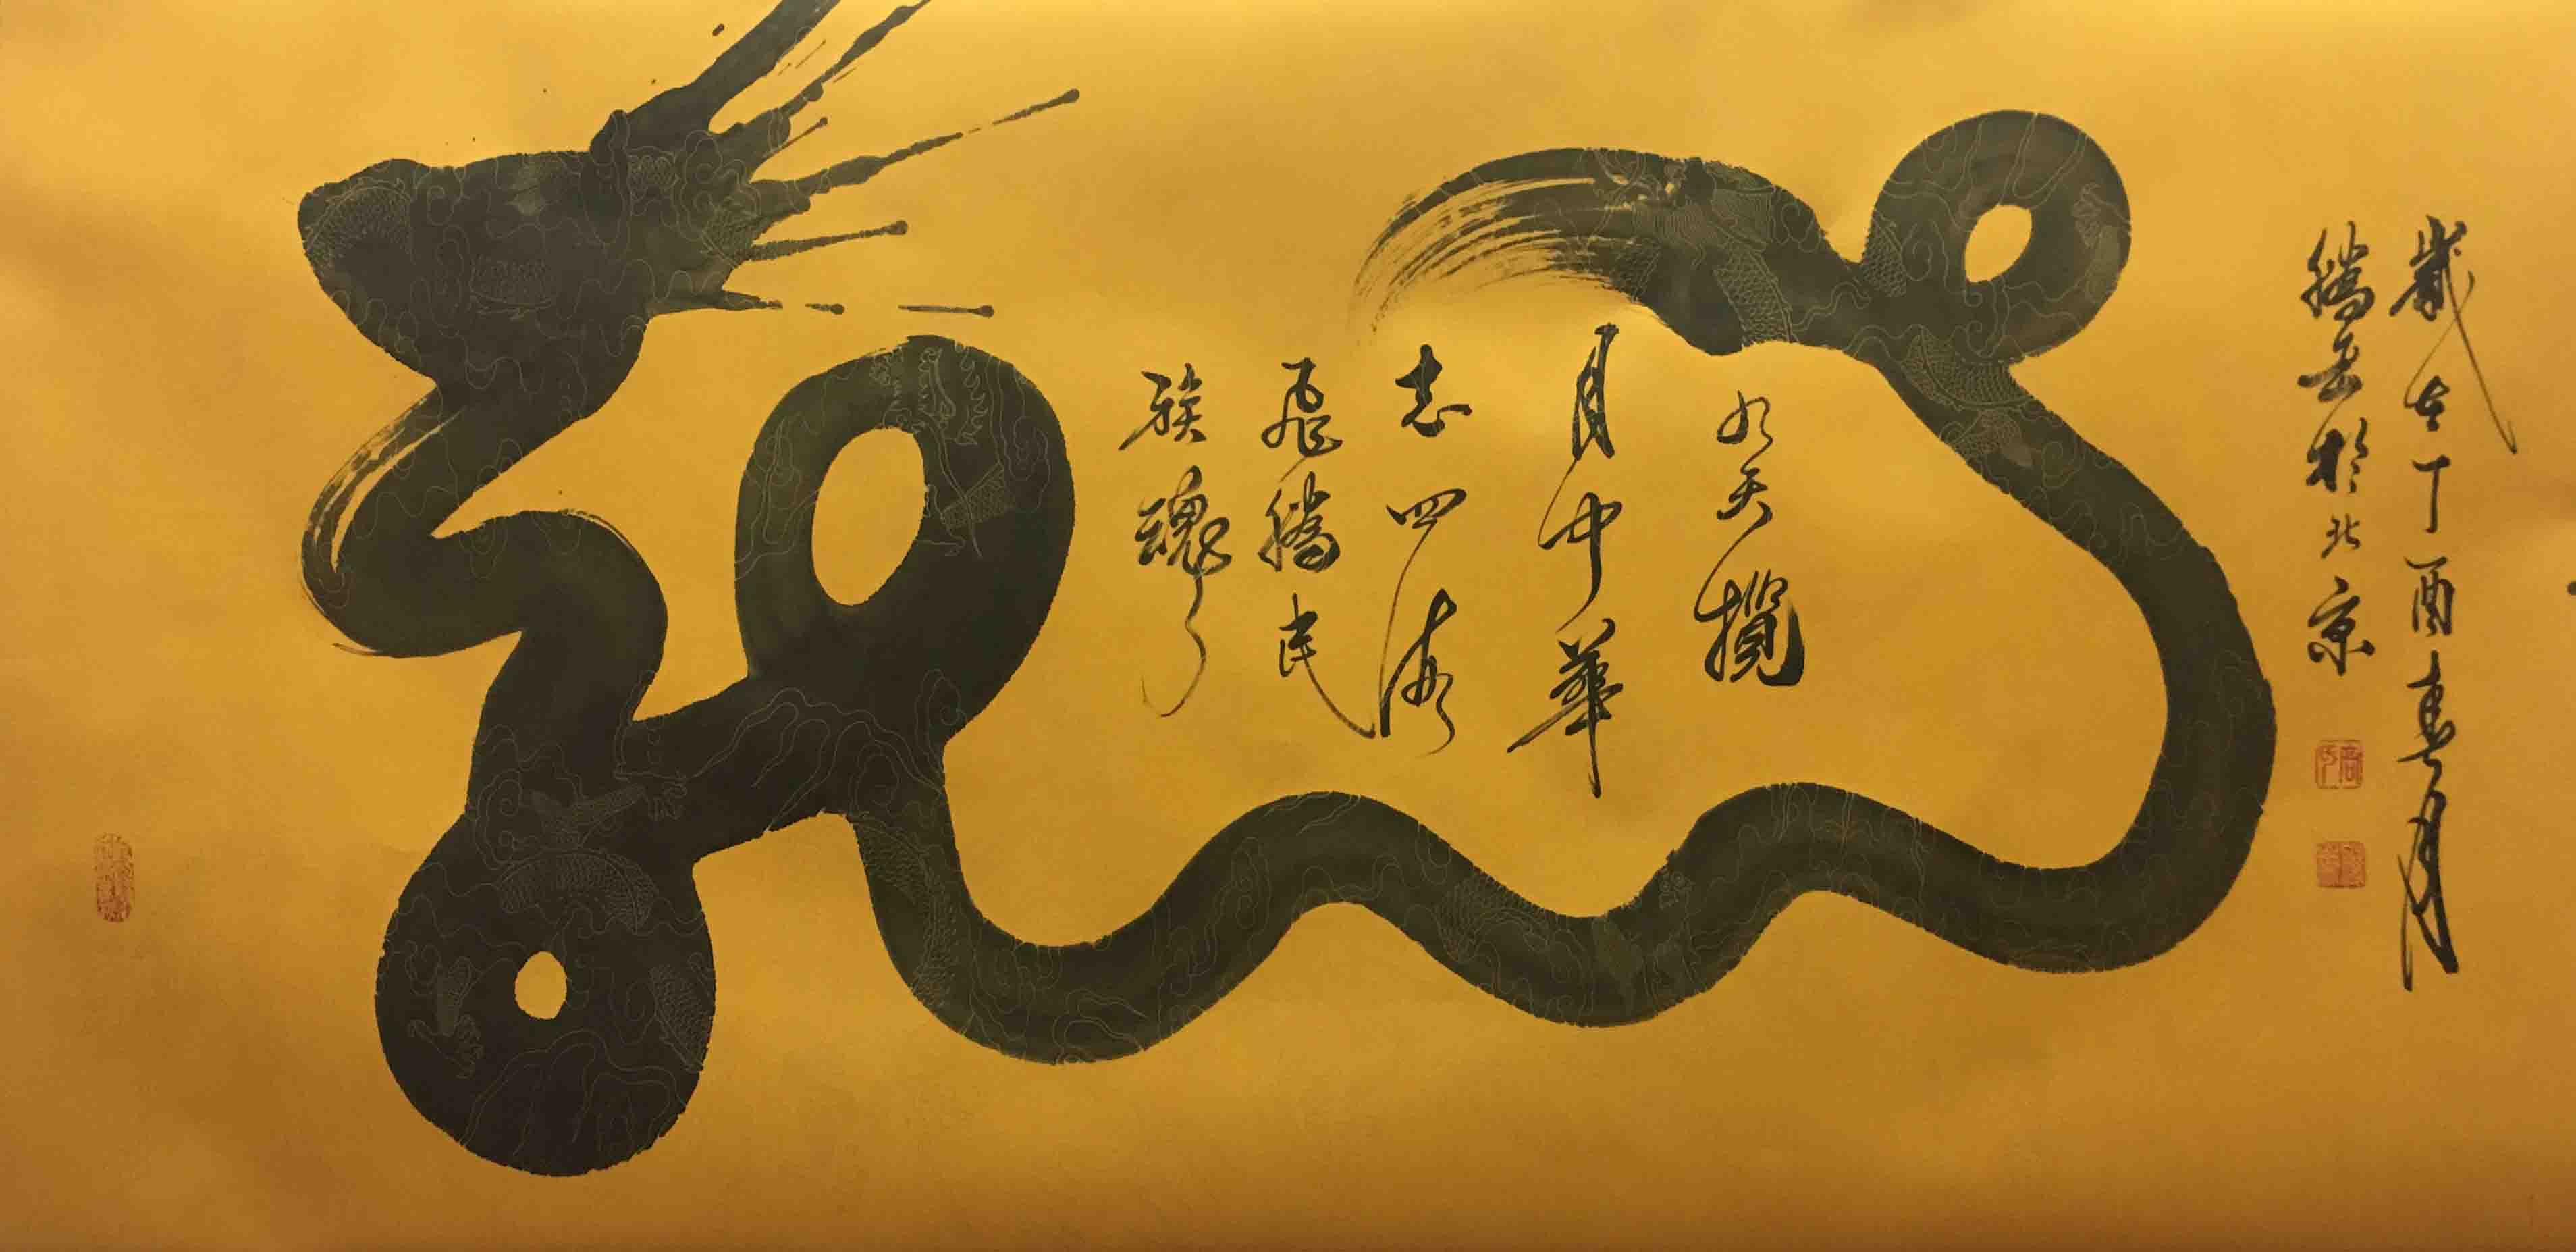 歲在丁酉春月
騰於北京
九天攬
月中華
志四海
飛騰民
族魂